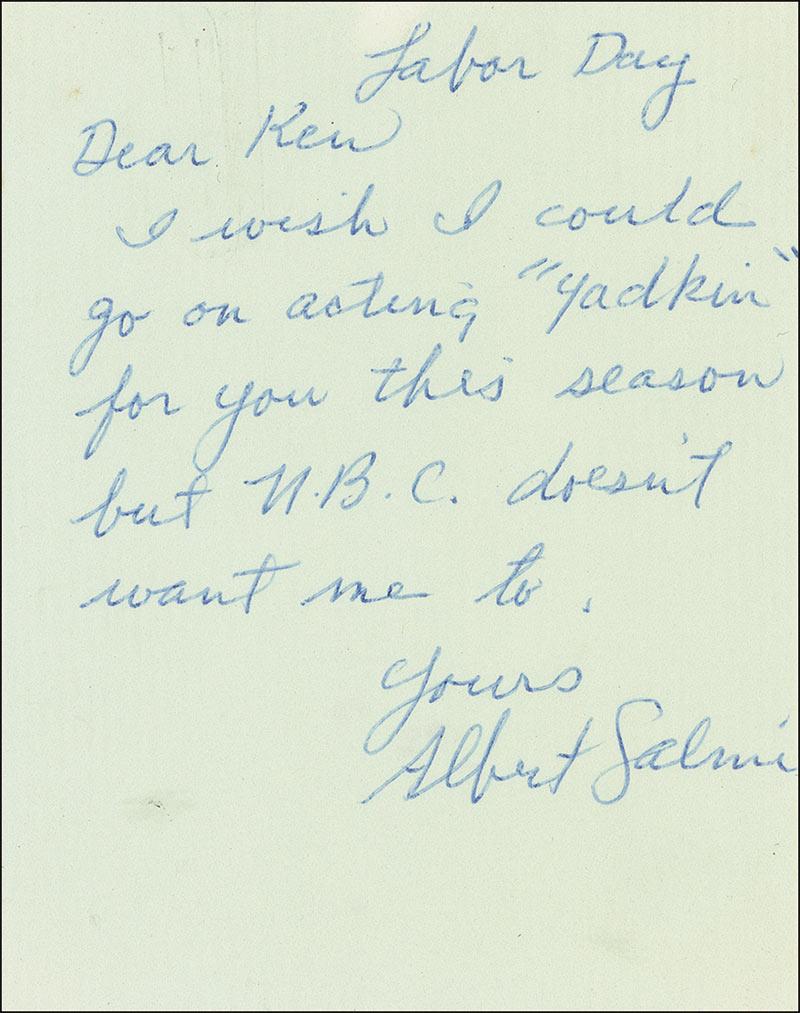 Labor Day
Dear Ken
I wish I could
go on acting "Yadkin"
for you this season
but N.B.C. doesn't
want me to.
Yours
Albert Salmi